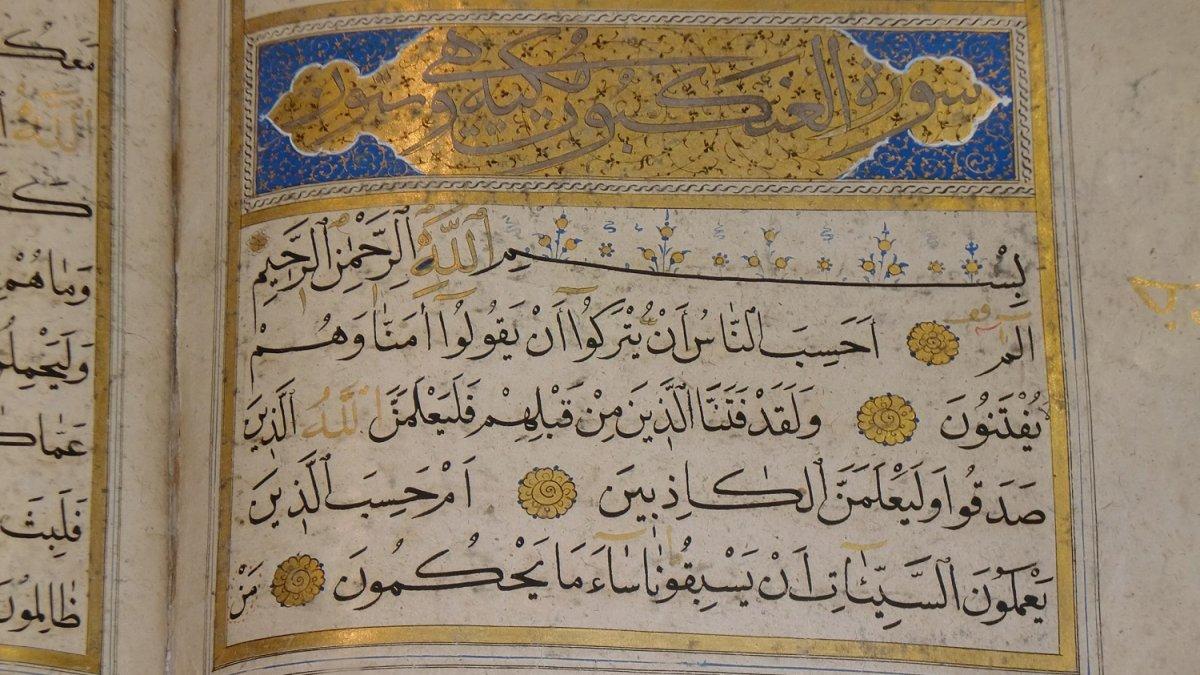 سورة العنكبوت مكية وهي وستون
بِسْمِ اللَّهِ الرَّحْمٰنِ الرَّحِيمِ
الم اَحَسِبَ النَّاسُ أَنْ يُتْرَكُوا أَنْ يَقُولُوا أٰمَنَّا وَهُمْ
يُفْتَنُونَ وَلَقَدْ فَتَنَّا الَّذِينَ مِنْ قَبْلِهِمْ فَلَيَعْلَمَنَّ اللَّهُ الَّذِينَ
صَدَقُوا وَلَيَعْلَمَنَّ الْكَاذِبِينَ اَمْ حَسِبَ الَّذِينَ
يَعْمَلُونَ السَّيِّئَاتِ اَنْ يَسْبِقُونَا سَاءَ مَا يَحْكُمُونَ مَنْ
مَعَكُ
اللَّه
وَمَا هُمْ
وَلَيَحْمِلُ
عَمَّا كَا
فَلَبِثَ
ظَالِمُونَ